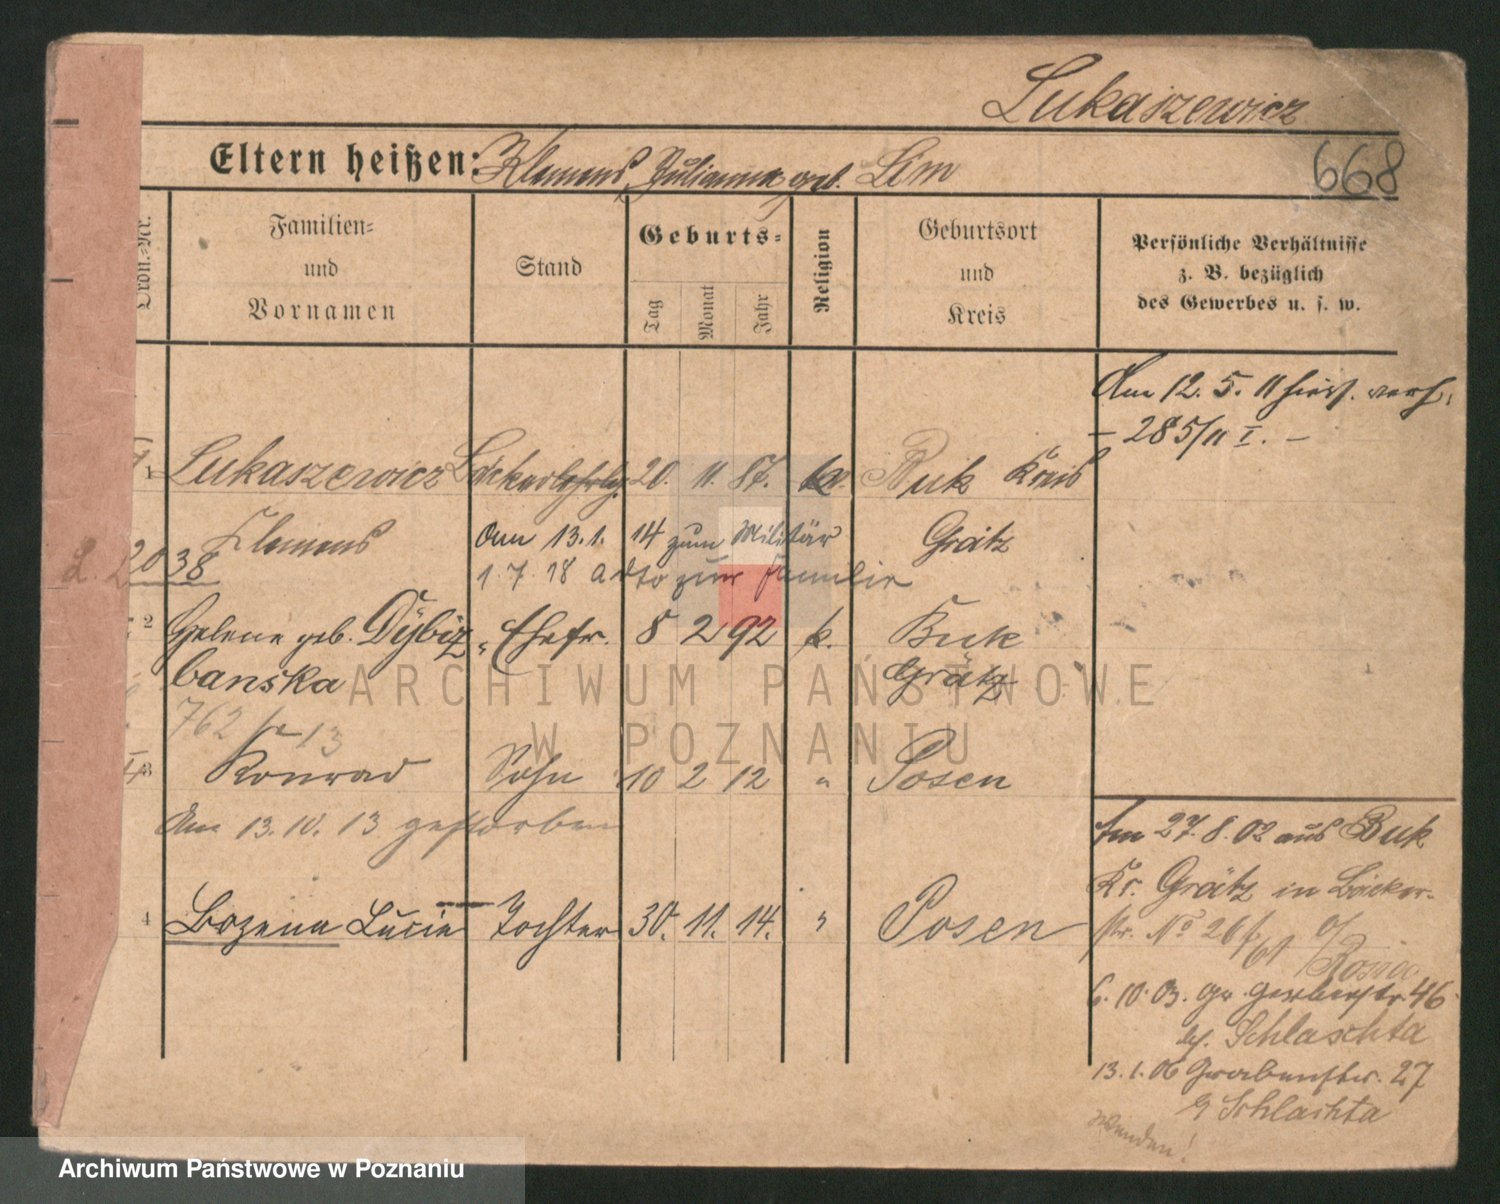 Lukaszewicz
Eltern heißen: Klemens, Julianna geb. Lim
668
Ordn.-Nr.
Familien-
und
Vornamen
Stand
Geburts-
Tag
Monat
Jahr
Religion
Geburtsort
und
Kreis
Persönliche Verhältnisse
z. B. bezüglich
des Gewerbes u. s. w.
Am 12. 5. 11 hier verh.
– 285/11 I. –
1 Lukaszewicz Bäckerlehrlg. 20. 11. 87. ka. Buk Kreis
Klemens Am 13. 1. 14 zum Militär Grätz
2038 1. 7. 18 zur Familie
2 Helene geb. Dybiz- Ehefr. 8 2 92 k. Buk
banska Grätz
762 13
3 Konrad Sohn 10 2 12 " Posen
Am 13. 10. 13 gestorben
4 Bozena Lucie Tochter 30. 11. 14. " Posen
Am 27. 8. 02 aus Buk
Kr. Grätz in Bäcker-
str. No 26
6. 10. 03. gr. Gerberstr. 46
Schlaschta
13. 1. 06 Grabenstr. 27
Schlachta
Wenden!
ARCHIWUM PAŃSTWOWE
W POZNANIU
Archiwum Państwowe w Poznaniu